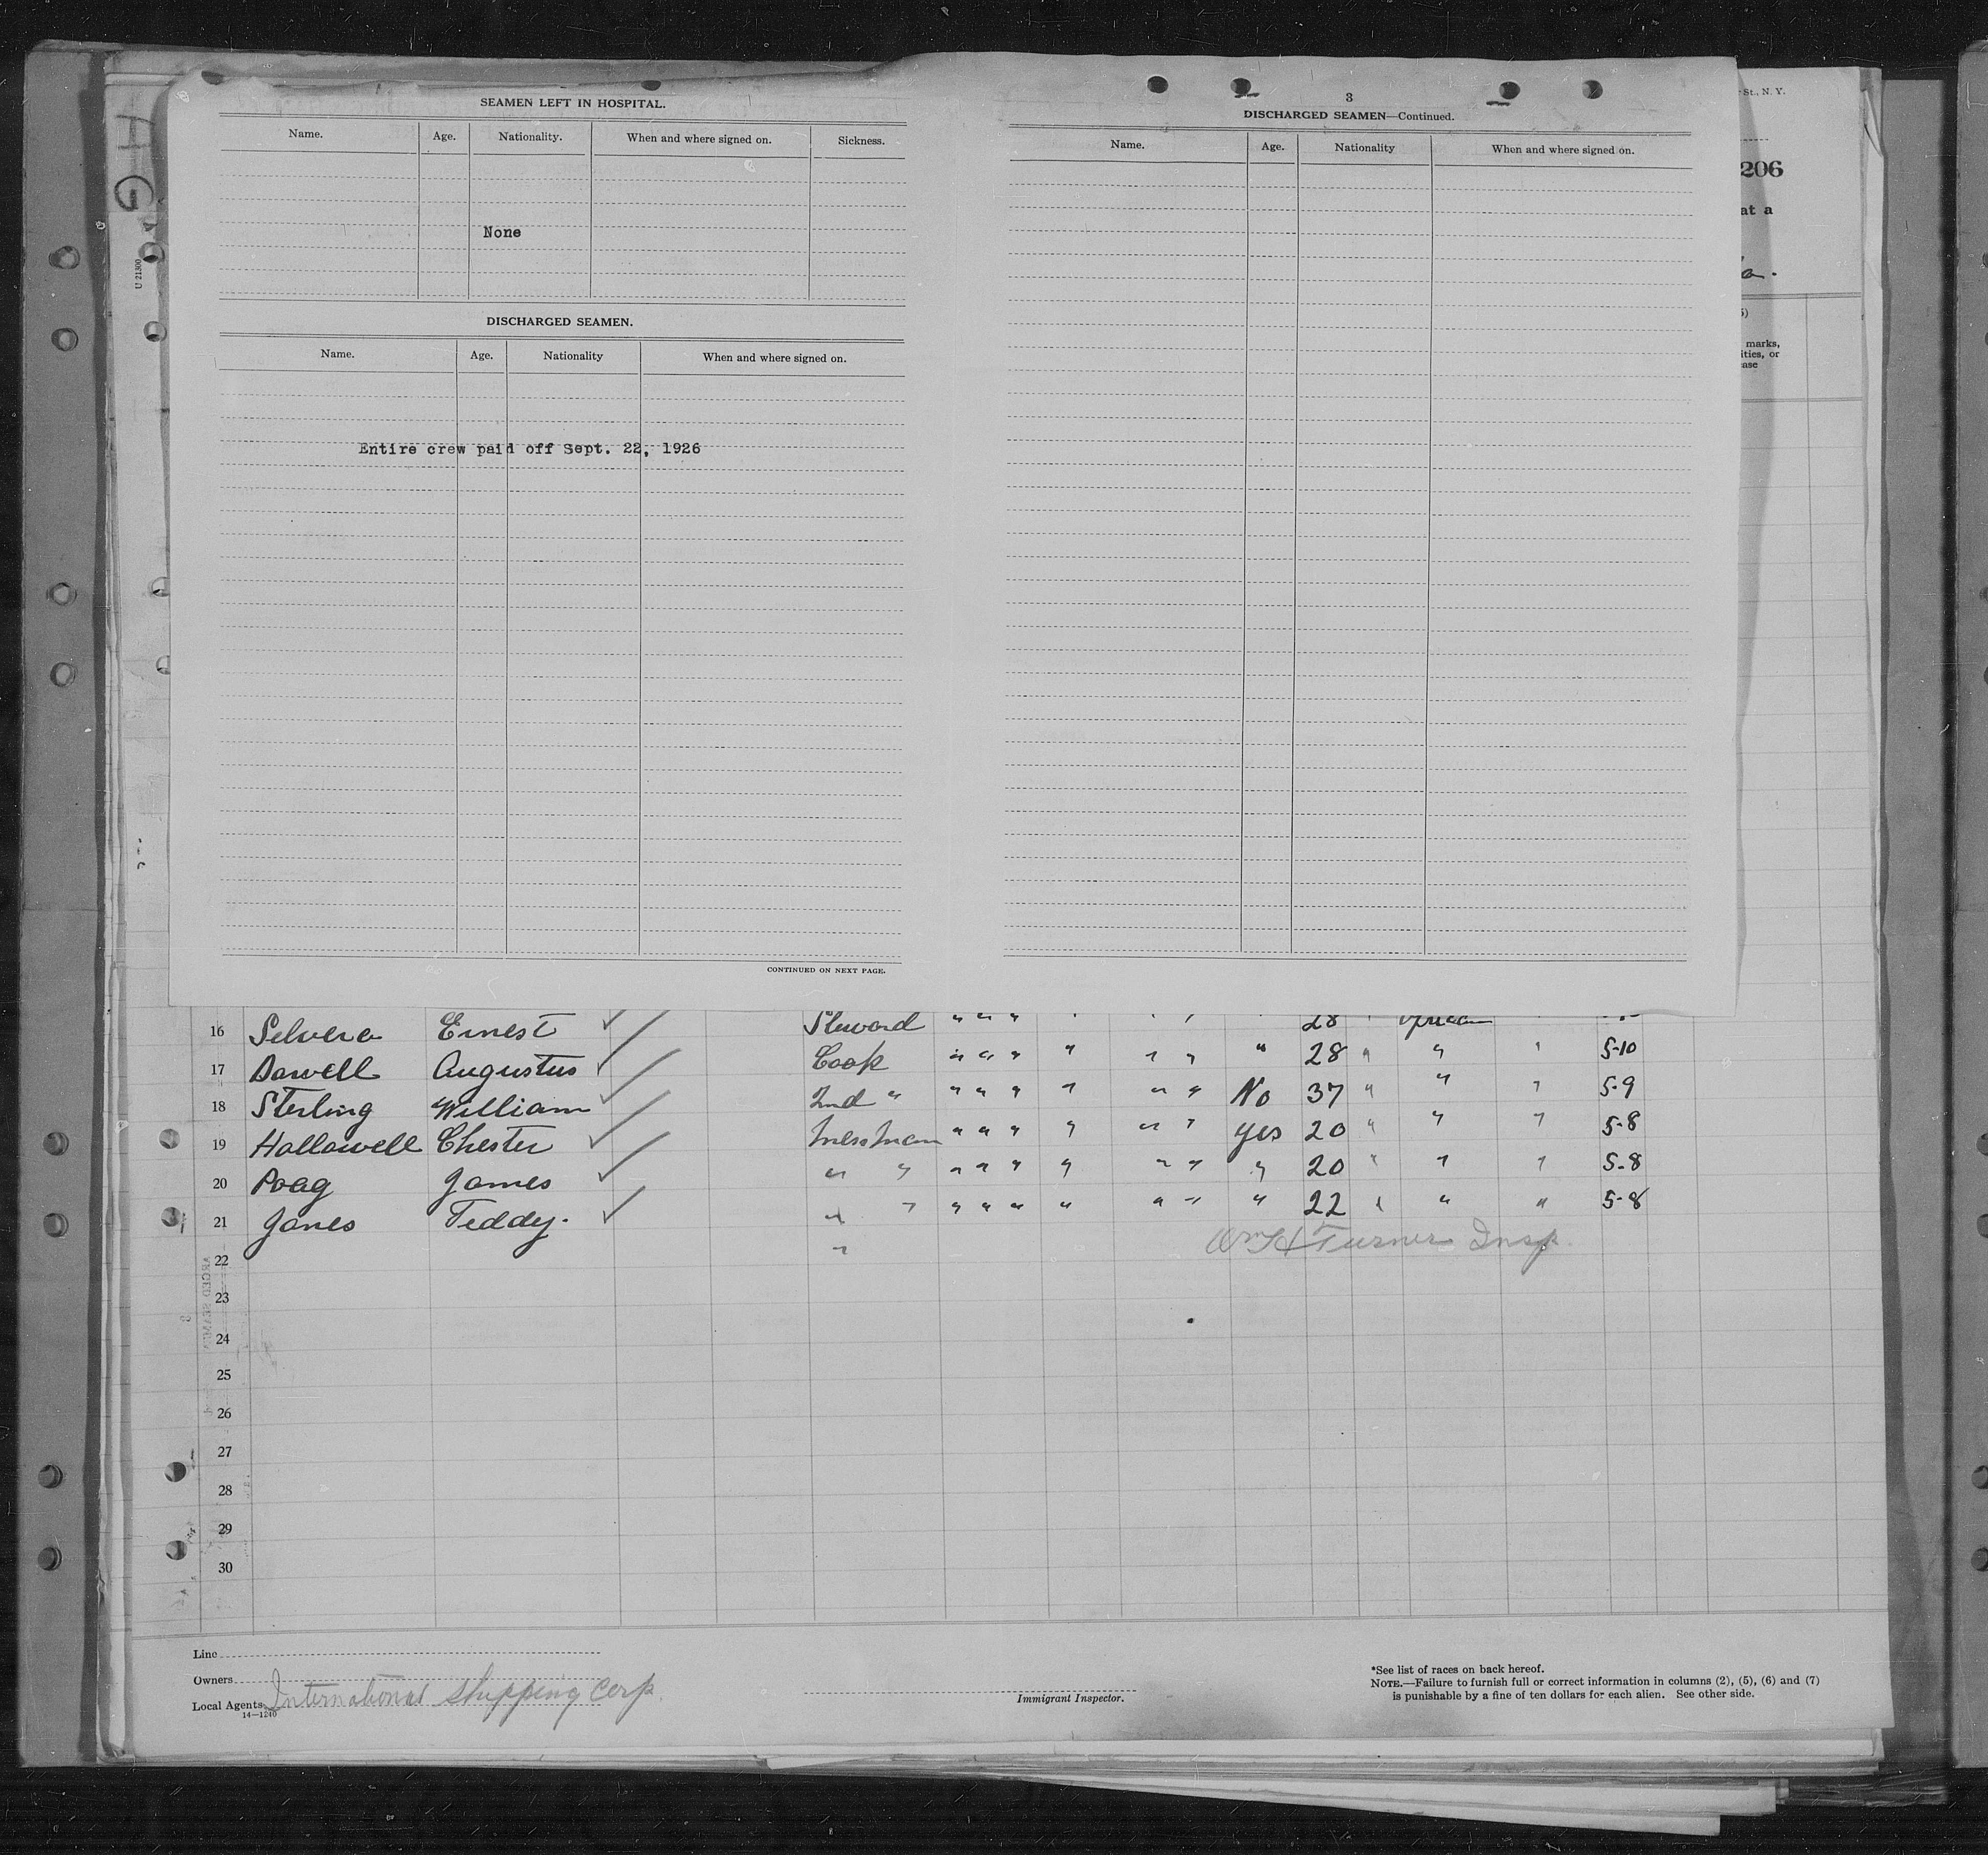 St., N. Y.
206
at a
a.
5)
marks,
ities, or
ase
A
G
U 21300
SEAMEN LEFT IN HOSPITAL.
Name. Age. Nationality. When and where signed on. Sickness.
None
DISCHARGED SEAMEN.
Name. Age. Nationality When and where signed on.
Entire crew paid off Sept. 22, 1926
CONTINUED ON NEXT PAGE.
3
DISCHARGED SEAMEN—Continued.
Name. Age. Nationality When and where signed on.
16 Selvera Ernest ✓ Steward " " " " " " 28 " African
17 Dowell Augustus ✓ Cook " " " " " " " 28 " " " 5-10
18 Sterling William ✓ 2nd " " " " " " " No 37 " " " 5-9
19 Hallowell Chester ✓ Messman " " " " " " Yes 20 " " " 5-8
20 Poag James ✓ " " " " " " " " " 20 " " " 5-8
21 Jones Teddy. ✓ " " " " " " " " " 22 " " " 5-8
22 " Wm H Turner Insp.
23
24
25
26
27
28
29
30
Line
Owners
Local Agents International Shipping Corp.
14—1240
Immigrant Inspector.
*See list of races on back hereof.
NOTE.—Failure to furnish full or correct information in columns (2), (5), (6) and (7)
is punishable by a fine of ten dollars for each alien. See other side.